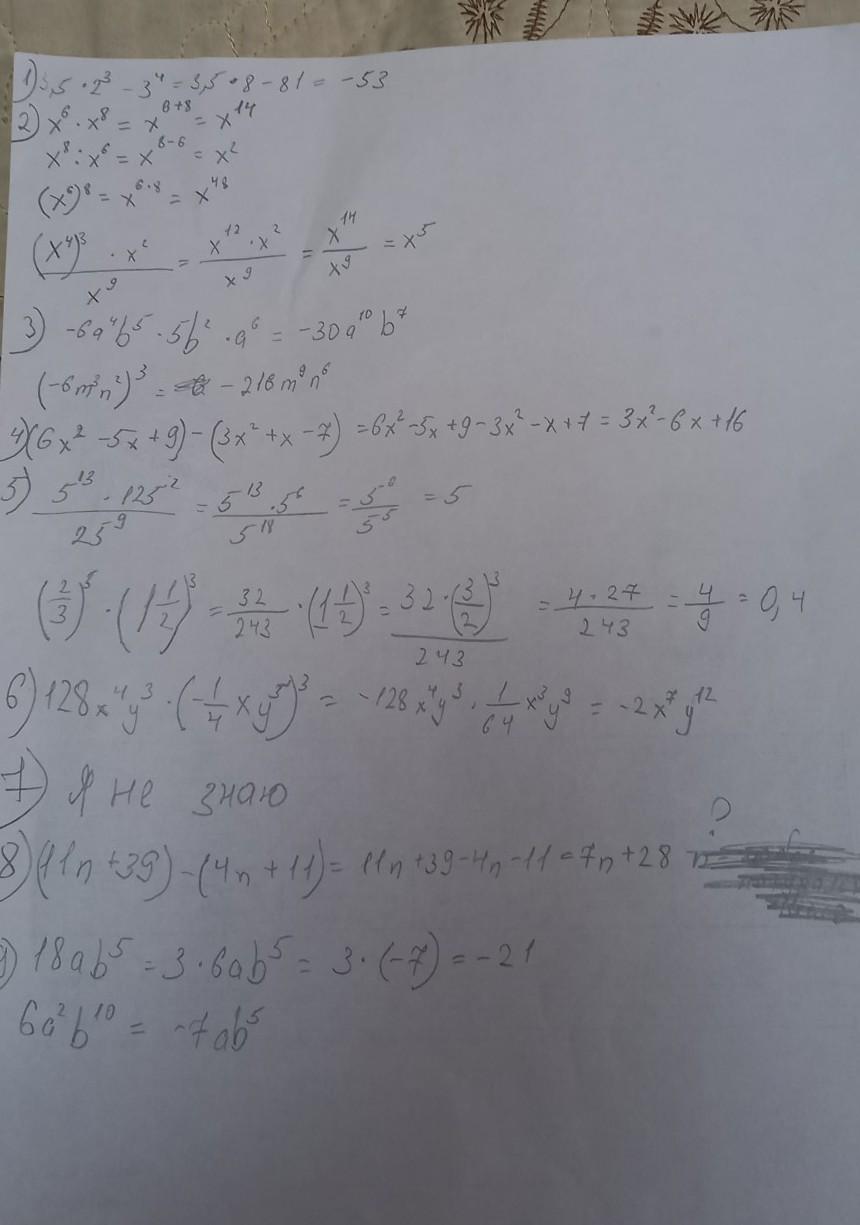 1) 3,5 · 2³ - 3⁴ = 3,5 · 8 - 81 = -53
2) x⁶ · x⁸ = x⁶⁺⁸ = x¹⁴
x⁸ : x⁶ = x⁸⁻⁶ = x²
(x⁶)⁸ = x⁶·⁸ = x⁴⁸
(x⁴)³ · x² / x⁹ = x¹² · x² / x⁹ = x¹⁴ / x⁹ = x⁵
3) -6a⁴b⁵ · 5b² · a⁶ = -30a¹⁰b⁷
(-6m³n²)³ = -216m⁹n⁶
4) (6x² - 5x + 9) - (3x² + x - 7) = 6x² - 5x + 9 - 3x² - x + 7 = 3x² - 6x + 16
5) 5¹³ · 125² / 25⁹ = 5¹³ · 5⁶ / 5¹⁸ = / 5⁵ = 5
(2/3)⁵ · (1 1/2)³ = 32/243 · (1 1/2)³ = 32 · (3/2)³ / 243 = 4 · 27 / 243 = 4/9 = 0,4
6) 128x⁴y³ · (-1/4 xy³)³ = -128x⁴y³ · 1/64 x³y⁹ = -2x⁷y¹²
7) Я не знаю
8) (11n + 39) - (4n + 11) = 11n + 39 - 4n - 11 = 7n + 28 ?
9) 18ab⁵ = 3 · 6ab⁵ = 3 · (-7) = -21
6a²b¹⁰ = -7ab⁵